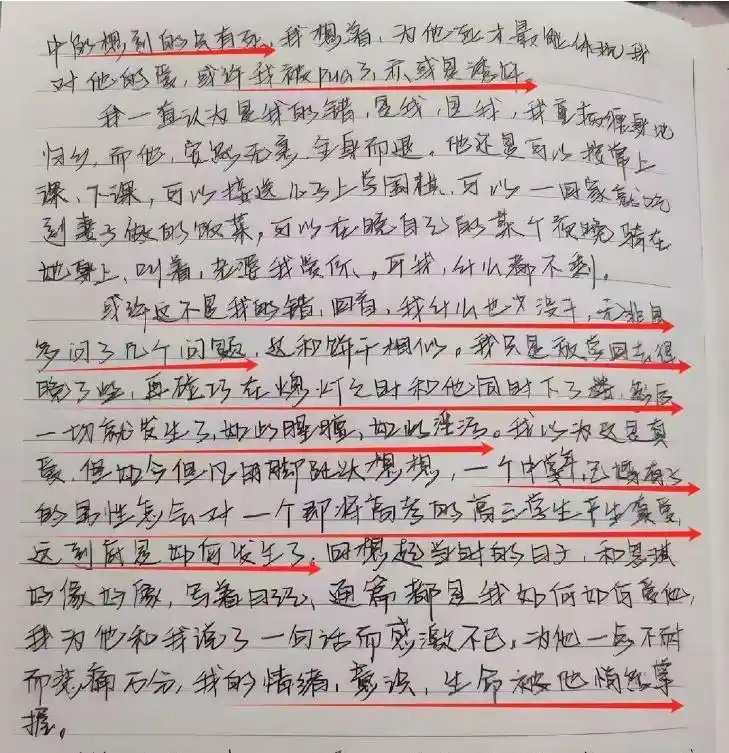 中的想到的只有死,我想着,为他死才最能体现我
对他的爱,或许我被pua了,亦或是讨好。
我一直认为是我的错,是我,是我,我重病缠身地
归乡,而他,安然无恙,全身而退。他还是可以按常上
课、下课,可以接送儿子上学围棋,可以一回家就吃
到妻子做的饭菜,可以在晚自习的某个夜晚骑在
她身上,叫着,老婆我爱你,而我,什么都不剩。
或许这不是我的错,回首,我什么也没干,无非是
多问了几个问题,这和饼干相似。我只是放学回去得
晚了些,再碰巧在熄灯之时和他同时下了楼,然后
一切就发生了,如此腥膻,如此淫污。我以为这是真
爱,但如今但凡用脚趾头想想,一个中年,已婚有子
的男性怎会对一个即将高考的高三学生产生真爱,
这到底是如何发生了,回想起当时的日子,和思琪
好像好像,写着日记,通篇都是我如何如何爱他,
我为他和我说了一句话而感激不已,为他一点不耐
而悲痛万分,我的情绪,意识,生命被他悄然掌
握。